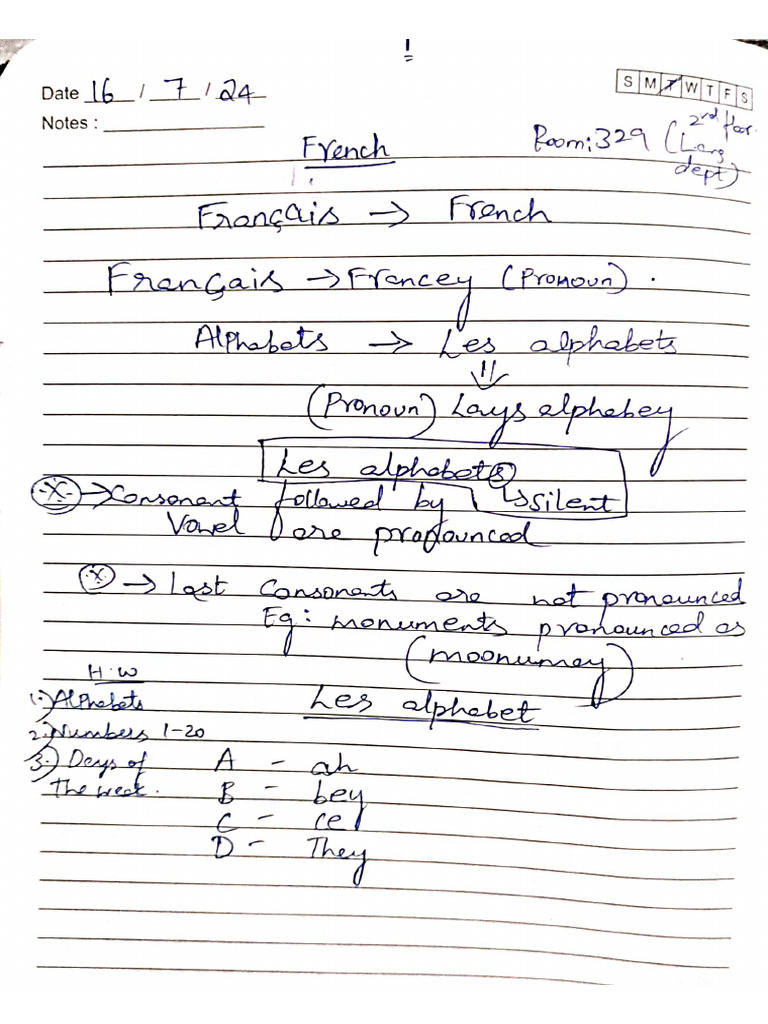 1
S M T W T F S
Date 16 / 7 / 24
Notes :
French
Room: 329 (2nd floor. Lang dept)
Français → French
Français → Francey (Pronoun) .
Alphabets → Les alphabets
(Pronoun) Lays alphabey
Les alphabets
→ Consonant followed by ↳ silent
Vowel are pronounced
→ Last Consonants are not pronounced
Eg: monuments pronounced as
(moonumey)
H.W
1.) Alphabets
2.) Numbers 1-20
3.) Days of
The week.
Les alphabet
A - ah
B - bey
C - ce
D - They